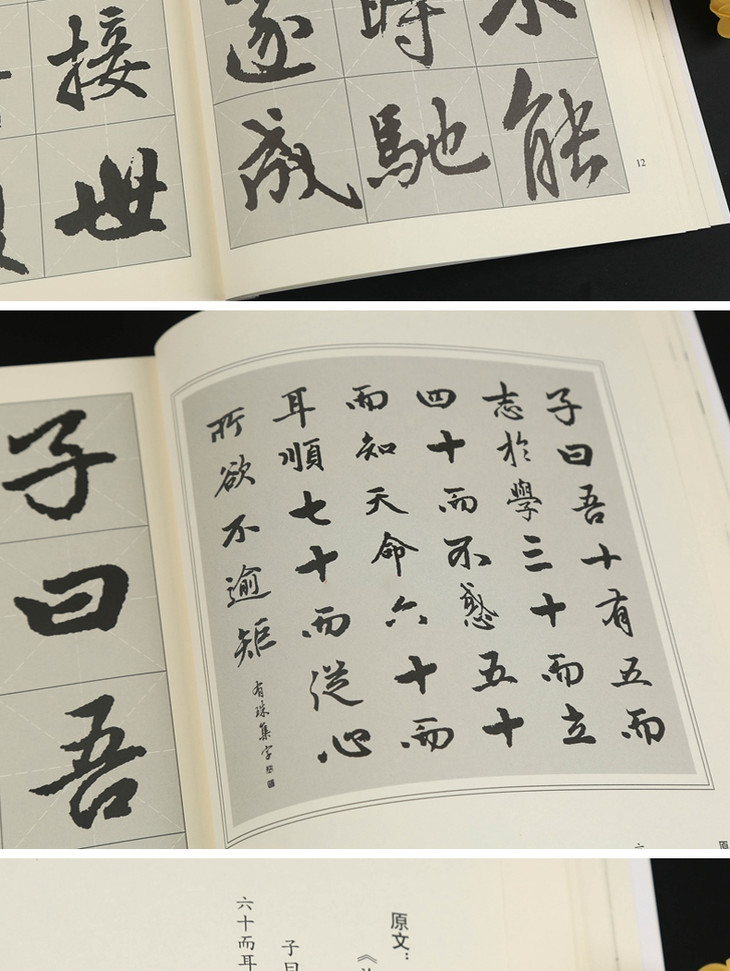 不能
時馳
遂成
12
接世
子曰吾十有五而
志於學三十而立
四十而不惑五十
而知天命六十而
耳順七十而從心
所欲不逾矩
有珠集字
子曰吾
原文：
子曰
六十而耳